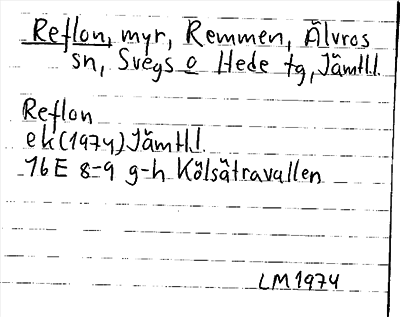 Reflon, myr, Remmen, Älvros
sn, Svegs o Hede tg, Jämtl.l.
Reflon
ek (1974) Jämtl.l.
16E 8-9 g-h Kölsätravallen
LM 1974